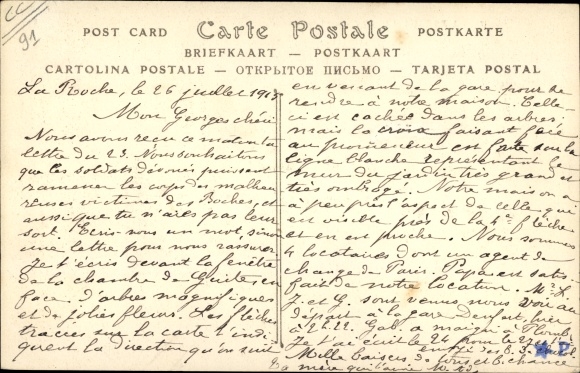 91
POST CARD — Carte Postale — POSTKARTE
BRIEFKAART — POSTKAART
CARTOLINA POSTALE — ОТКРЫТОЕ ПИСЬМО — TARJETA POSTAL
La Roche, le 26 juillet 191
Mon Georges chéri
Nous avons reçu ce matin ta
lettre du 23. Nous souhaitons
que les soldats dévoués puissent
ramener les corps des malheu
reuses victimes des Roches, et
aussi que tu n'aies pas leur
sort. Ecris-nous un mot, sinon
une lettre pour nous rassurer
Je t'écris devant la fenêtre
de la chambre de Guite, en
face d'arbres magnifiques
et de jolies fleurs. Les flèches
tracées sur la carte t'indi
quent la direction qu'on suit
en venant de la gare pour se
rendre à notre maison. Celle-
ci est cachée dans les arbres,
mais la croix faisant face
au promeneur est faite sur la
ligne blanche représentant le
mur du jardin très grand et
très ombragé. Notre maison a
à peu près l'aspect de celle qui
est visible près de la 4e flèche
et en est proche. Nous sommes
4 locataires dont un agent de
change de Paris. Papa est satis
fait de notre location. Mr
J. et G. sont venus nous voir au
départ à la gare
à 2h22. Gab. a maigri à
Je t'ai écrit le 24 pour le 27
Mille baisers de tous et B. chance
Ta mère qui t'aime
P